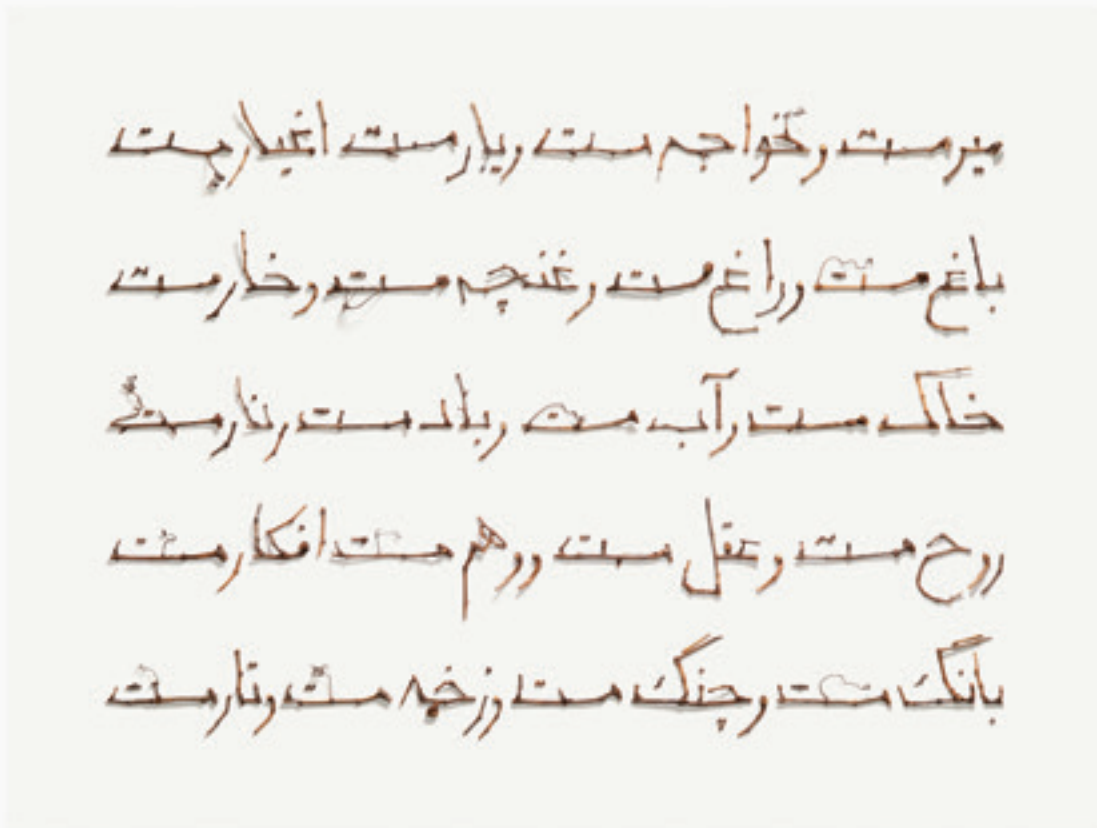 میر مست و خواجه مست و یار مست اغیار مست
باغ مست و راغ مست و غنچه مست و خار مست
خاک مست و آب مست و باد مست و نار مست
روح مست و عقل مست و وهم مست افکار مست
بانگ مست و چنگ مست و زخمه مست و تار مست